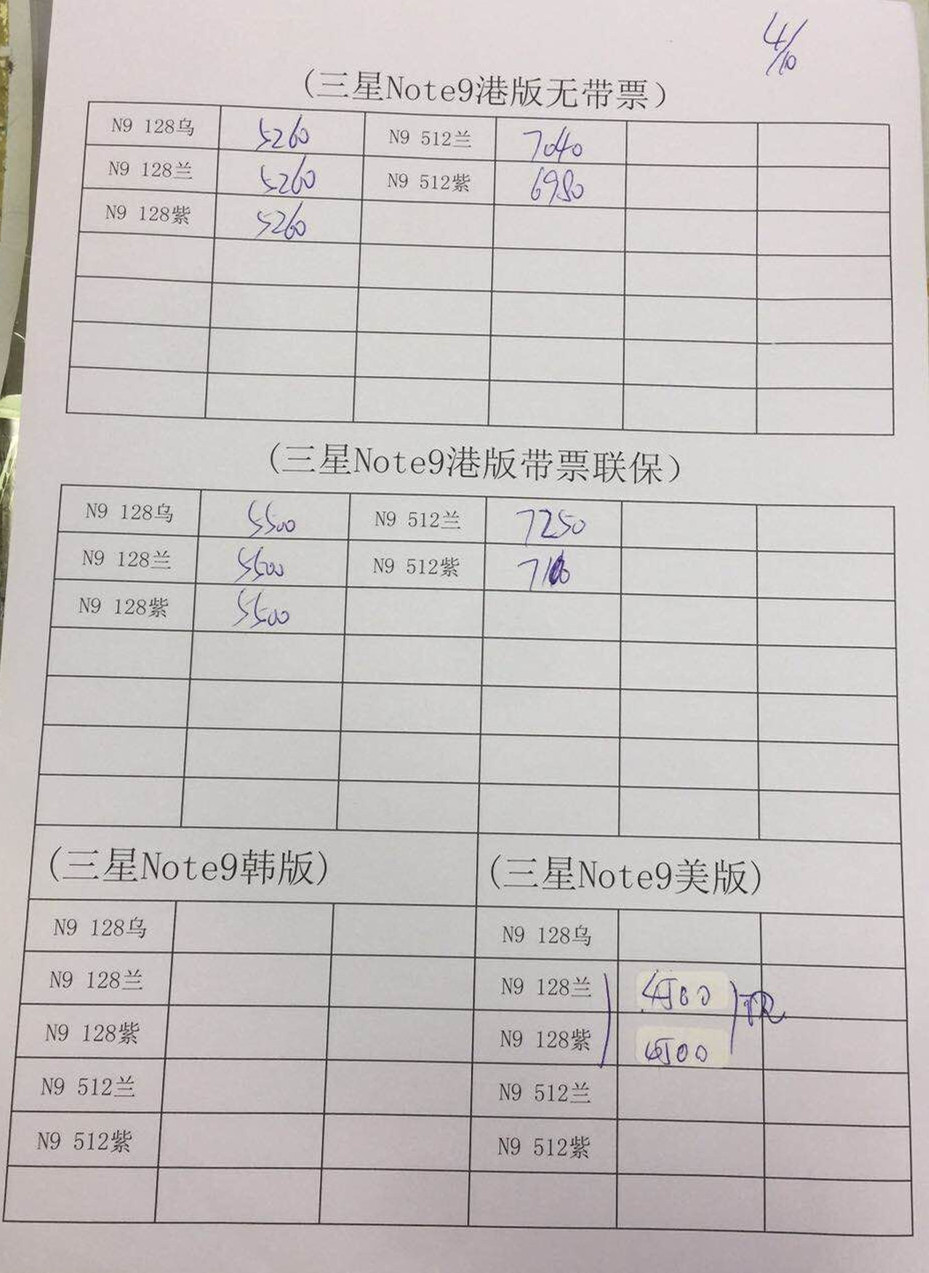 4/10
(三星Note9港版无带票)
N9 128乌 5260 N9 512兰 7040
N9 128兰 5260 N9 512紫 6980
N9 128紫 5260
(三星Note9港版带票联保)
N9 128乌 5500 N9 512兰 7250
N9 128兰 5500 N9 512紫
N9 128紫 5500
(三星Note9韩版) (三星Note9美版)
N9 128乌 N9 128乌
N9 128兰 N9 128兰 4500
N9 128紫 N9 128紫 4500
N9 512兰 N9 512兰
N9 512紫 N9 512紫